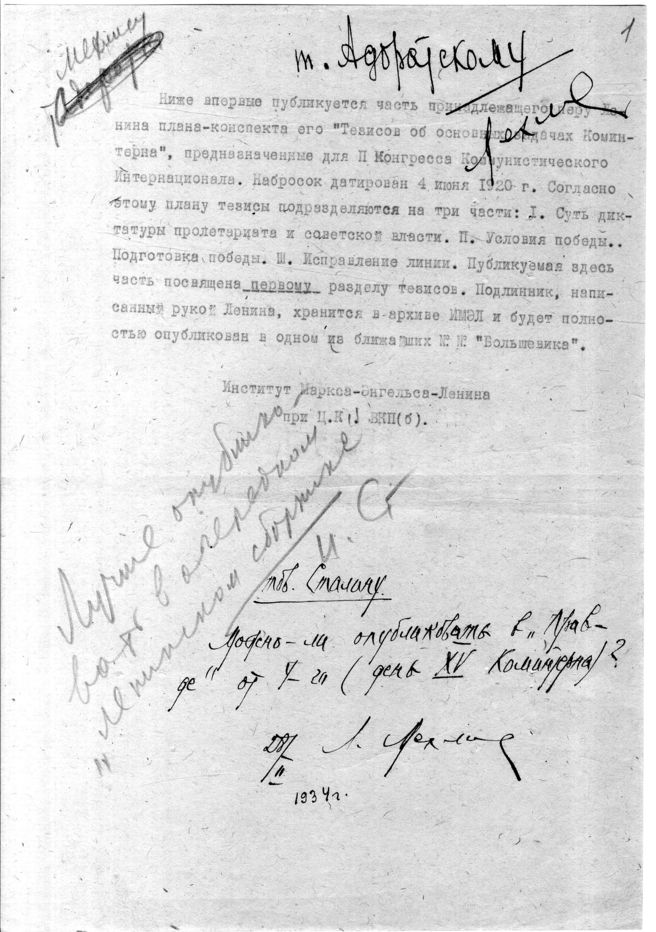 1
Мехлису
т. Адоратскому
Мехлис
Ниже впервые публикуется часть принадлежащего перу Ле-
нина плана-конспекта его "Тезисов об основных задачах Комин-
терна", предназначенные для П Конгресса Коммунистического
Интернационала. Набросок датирован 4 июня 1920 г. Согласно
этому плану тезисы подразделяются на три части: I. Суть дик-
татуры пролетариата и советской власти. П. Условия победы..
Подготовка победы. Ш. Исправление линии. Публикуемая здесь
часть посвящена первому разделу тезисов. Подлинник, напи-
санный рукой Ленина, хранится в архиве ИМЭЛ и будет полно-
стью опубликован в одном из ближайших №№ "Большевика".
Институт Маркса-Энгельса-Ленина
при Ц.К. ВКП(б).
Лучше опублико-
вать в очередном
"Ленинском сборнике
И. Ст
тов. Сталину.
Можно-ли опубликовать в "Прав-
де" от 4-го (день XV Коминтерна)?
Л. Мехлис
28/II
1934 г.